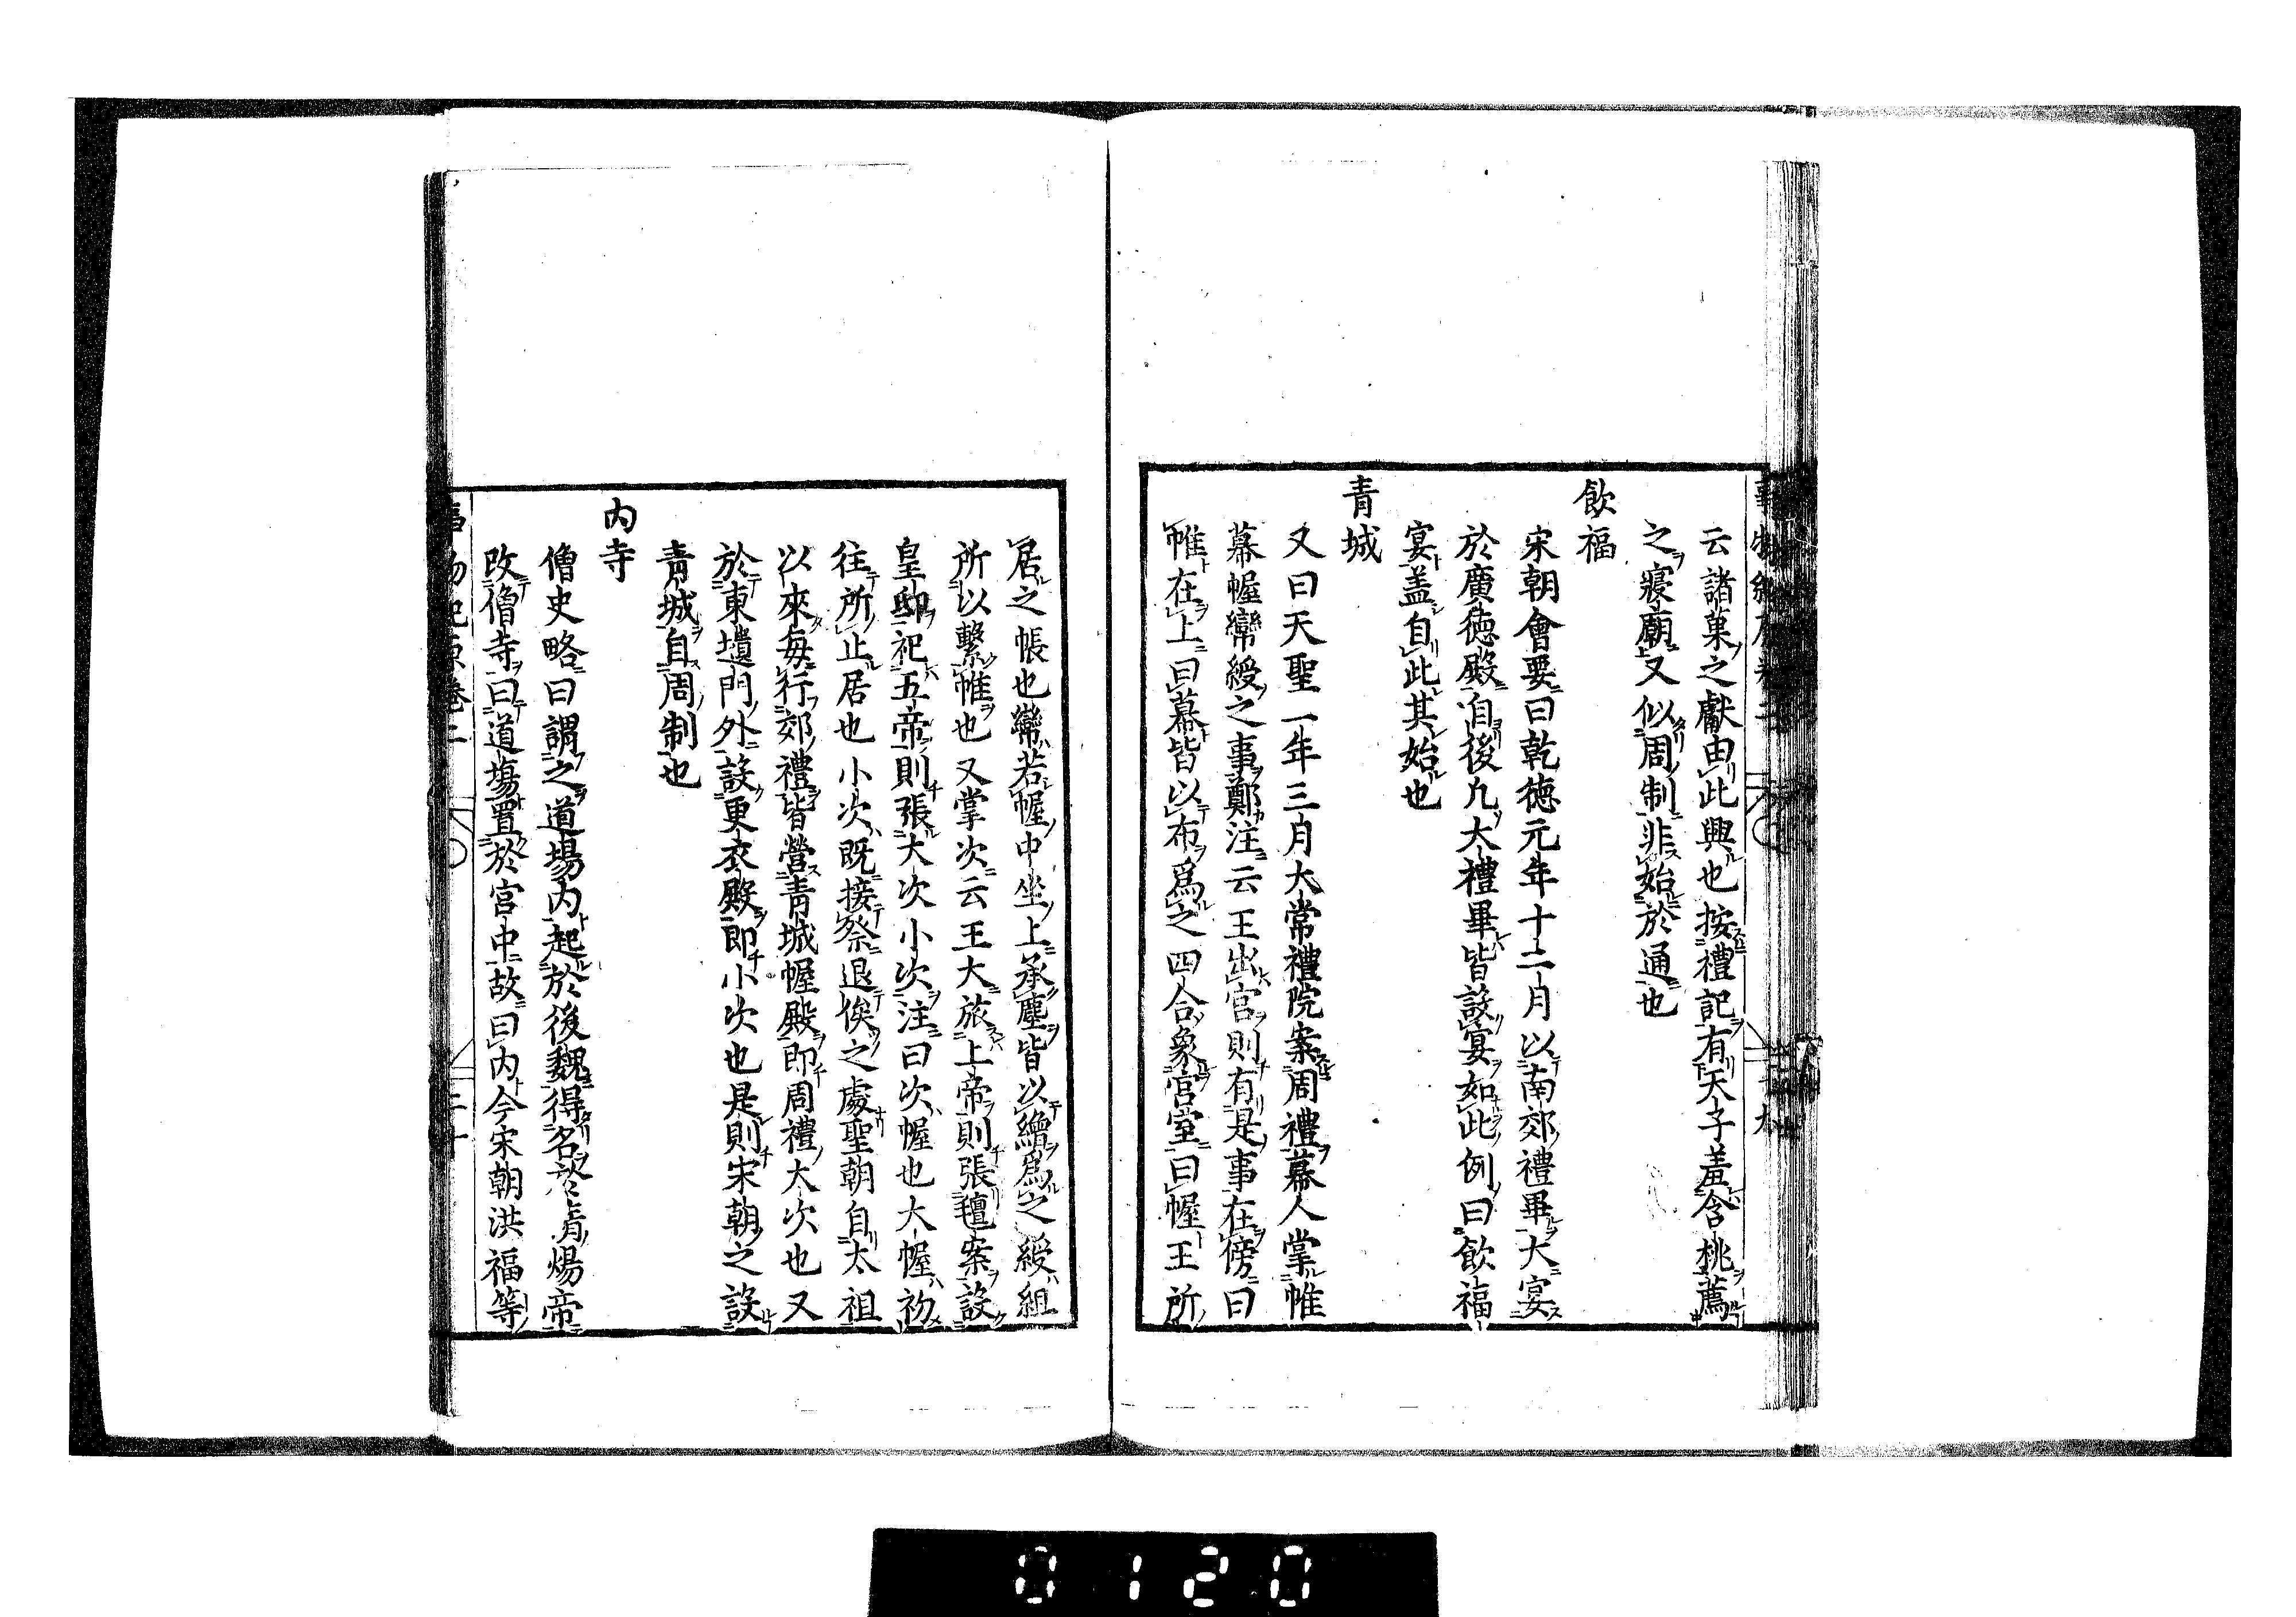 云諸菓之獻由此興也按禮記有天子羞含桃薦
之寢廟又似周制非始於通也
飲福
宋朝會要曰乾德元年十二月以南郊禮畢大宴
於廣德殿自後凡大禮畢皆設宴如此例曰飲福
宴盖自此其始也
青城
又曰天聖一年三月大常禮院案周禮幕人掌帷
幕幄帟綬之事鄭注云王出宮則有是事在傍曰
帷在上曰幕皆以布爲之四合象宮室曰幄王所
居之帳也帟若幄中坐上承塵皆以繒爲之綬組
所以繫帷也又掌次云王大旅上帝則張氊案設
皇邸祀五帝則張大次小次注曰次幄也大幄初
往所止居也小次既接祭退俟之處聖朝自太祖
以來每行郊禮皆營青城幄殿即周禮大次也又
於東壝門外設更衣殿即小次也是則宋朝之設
青城自周制也
内寺
僧史略曰謂之道場内起於後魏得名於煬帝
改僧寺曰道場置於宮中故曰内今宋朝洪福等
事物紀原卷二
三十
0120